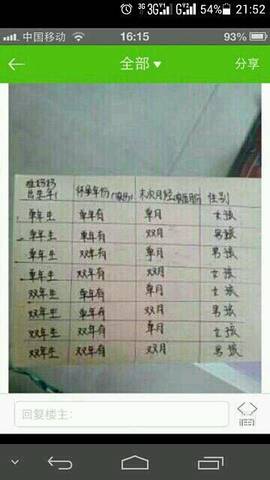 3G 3G G 54% 21:52
中国移动 16:15 93%
全部 分享
准妈妈 怀孕年份 末次月经 性别
出生年
单年生 单年有 单月 女孩
单年生 单年有 双月 男孩
单年生 双年有 单月 男孩
单年生 双年有 双月 女孩
双年生 单年有 单月 女孩
双年生 单年有 双月 男孩
双年生 双年有 单月 女孩
双年生 双年有 双月 男孩
回复楼主: